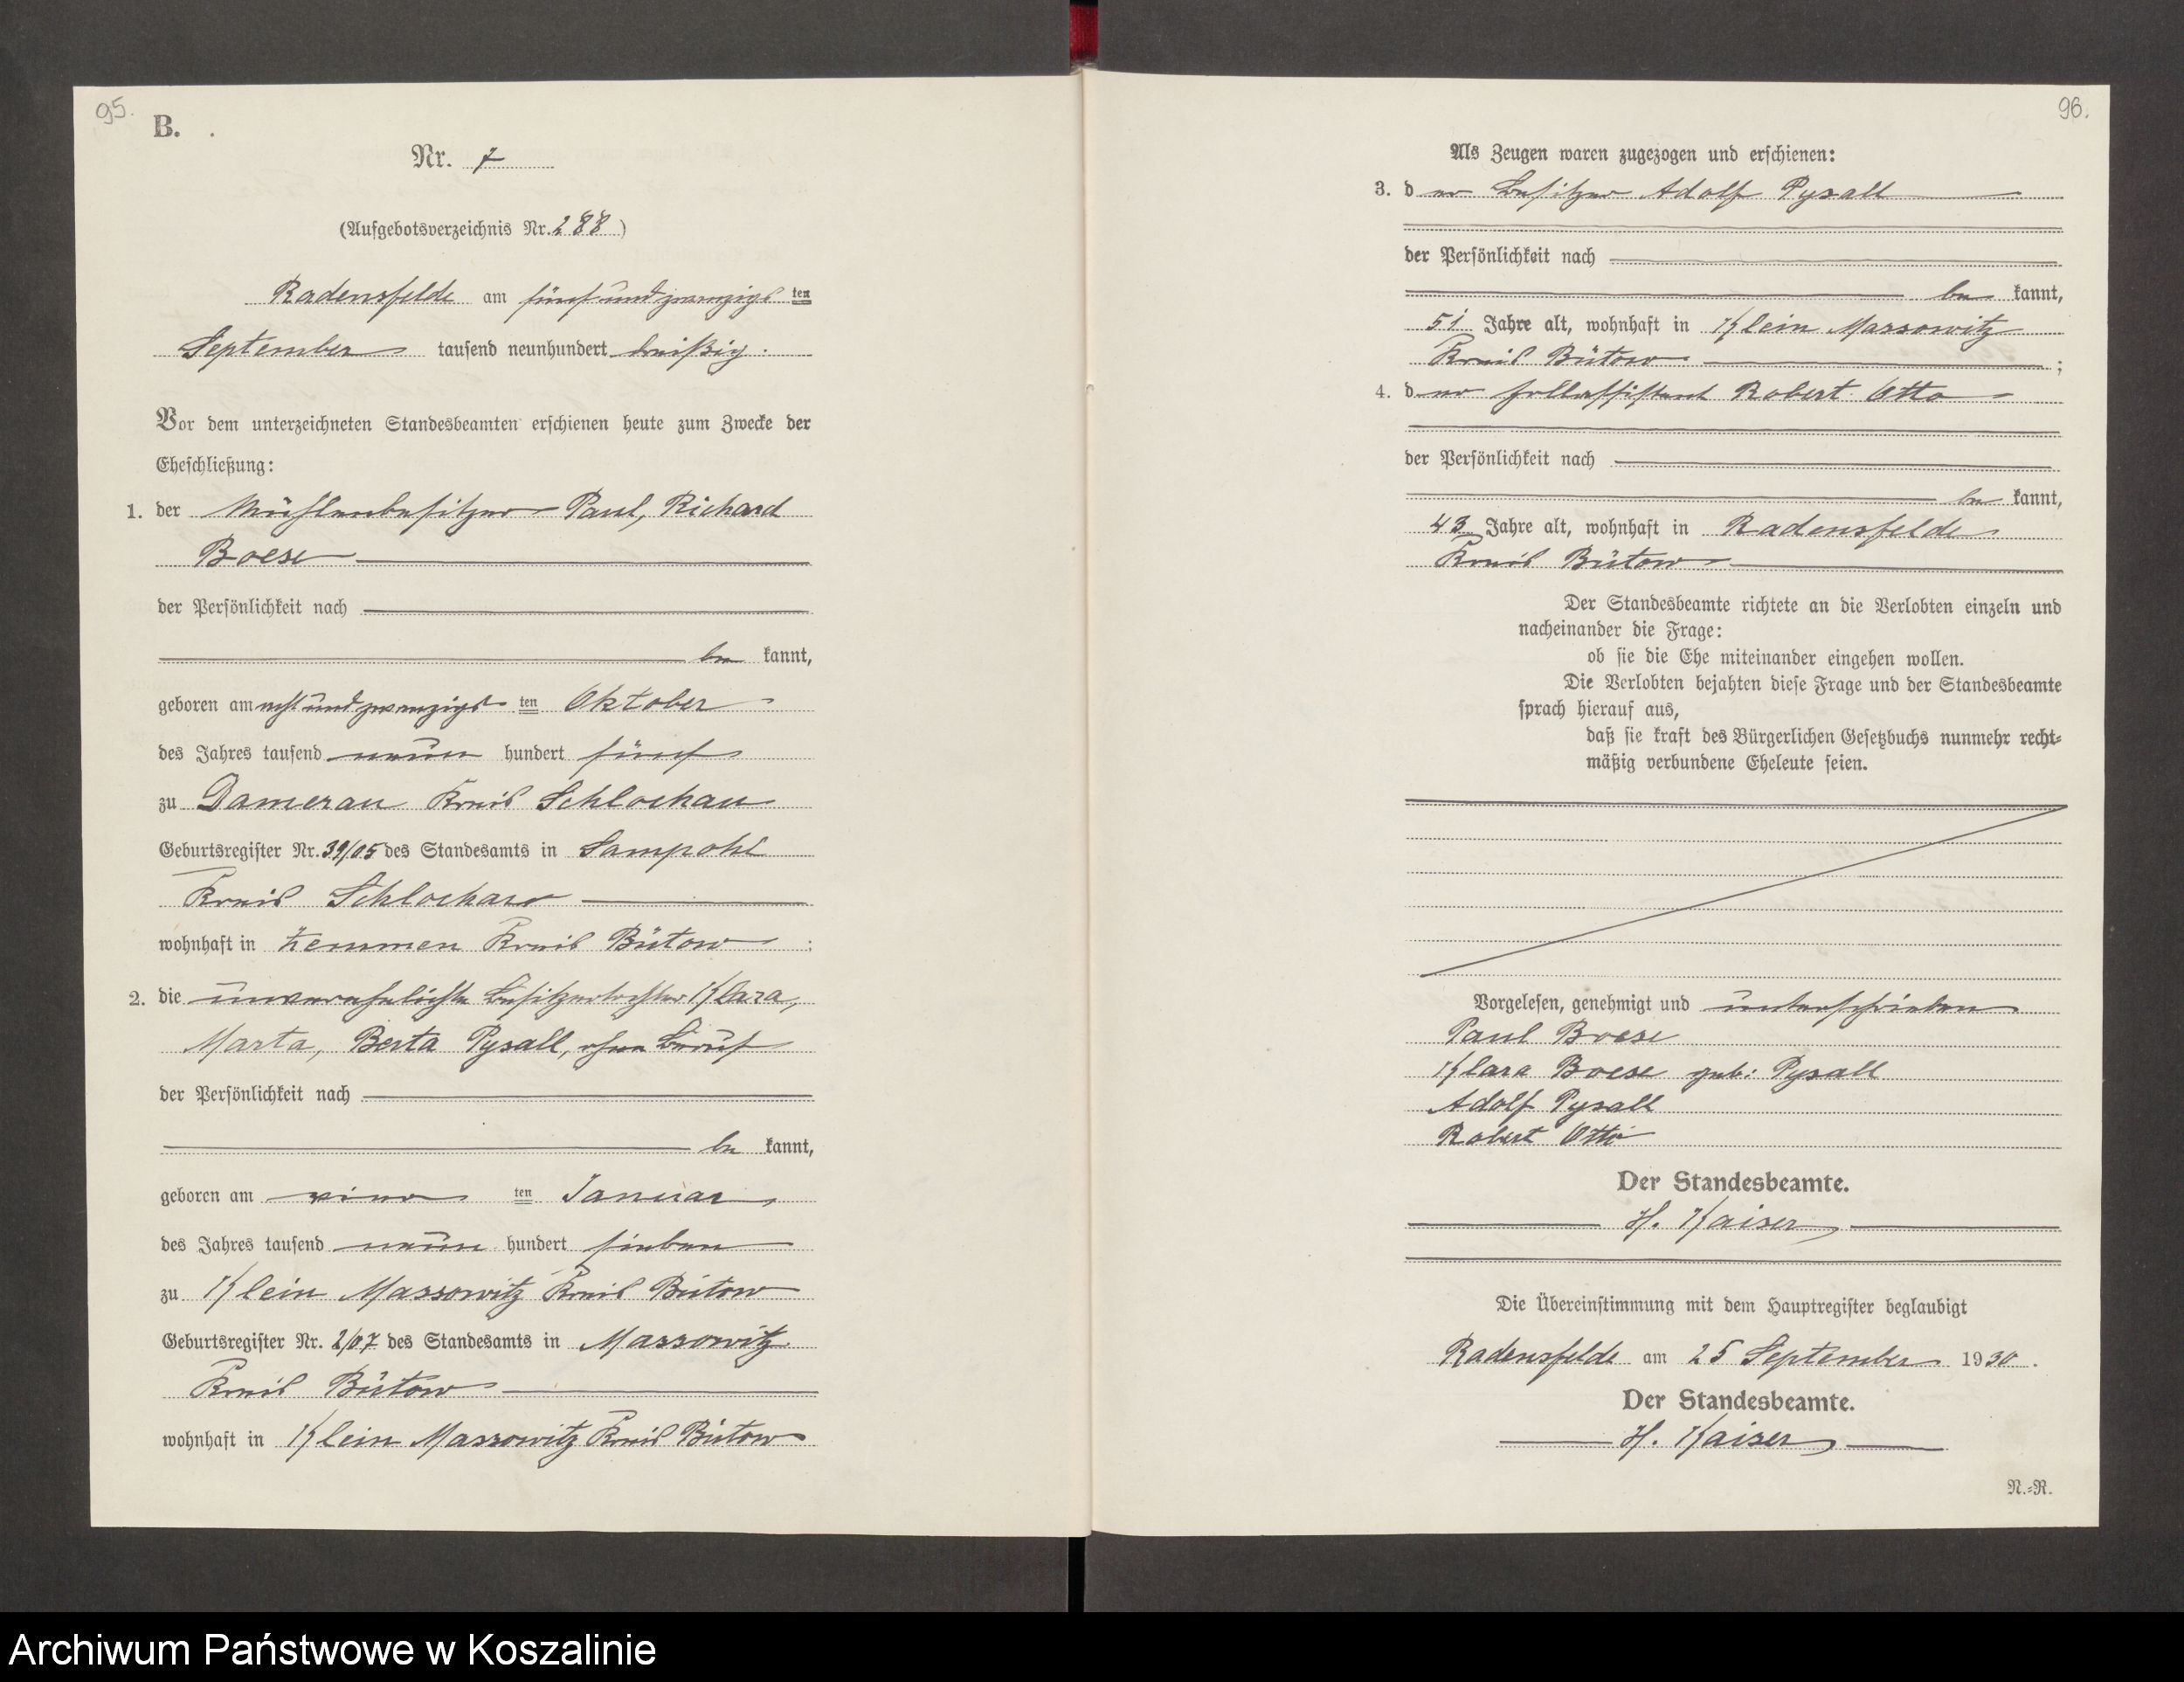 95.
B.
Nr. 7
(Aufgebotsverzeichnis Nr. 288)
Radensfelde am fünfundzwanzigsten
September tausend neunhundert dreißig.
Vor dem unterzeichneten Standesbeamten erschienen heute zum Zwecke der
Eheschließung:
1. der Mühlenbesitzer Paul, Richard
Boese
der Persönlichkeit nach
be kannt,
geboren am achtundzwanzigsten Oktober
des Jahres tausend neun hundert fünf
zu Damerau Kreis Schlochau
Geburtsregister Nr. 39/05 des Standesamts in Sampohl
Kreis Schlochau
wohnhaft in Zemmen Kreis Bütow;
2. die unverehelichte Besitzertochter Klara,
Marta, Berta Pysall, ohne Beruf
der Persönlichkeit nach
be kannt,
geboren am vierten Januar
des Jahres tausend neun hundert sieben
zu Klein Massowitz Kreis Bütow
Geburtsregister Nr. 2/07 des Standesamts in Massowitz
Kreis Bütow
wohnhaft in Klein Massowitz Kreis Bütow
96.
Als Zeugen waren zugezogen und erschienen:
3. der Besitzer Adolf Pysall
der Persönlichkeit nach
be kannt,
51 Jahre alt, wohnhaft in Klein Massowitz
Kreis Bütow;
4. der Zollassistent Robert Otto
der Persönlichkeit nach
be kannt,
43 Jahre alt, wohnhaft in Radensfelde
Kreis Bütow
Der Standesbeamte richtete an die Verlobten einzeln und
nacheinander die Frage:
ob sie die Ehe miteinander eingehen wollen.
Die Verlobten bejahten diese Frage und der Standesbeamte
sprach hierauf aus,
daß sie kraft des Bürgerlichen Gesetzbuchs nunmehr recht-
mäßig verbundene Eheleute seien.
Vorgelesen, genehmigt und unterschrieben
Paul Boese
Klara Boese geb: Pysall
Adolf Pysall
Robert Otto
Der Standesbeamte.
H. Kaiser
Die Übereinstimmung mit dem Hauptregister beglaubigt
Radensfelde am 25 September 1930.
Der Standesbeamte.
H. Kaiser
N.-R.
Archiwum Państwowe w Koszalinie